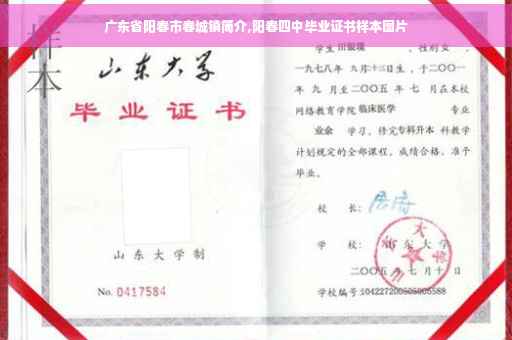 广东省阳春市春城镇简介,阳春四中毕业证书样本图片
样本
山东大学
毕业证书
山东大学制
No. 0417584
学生 性别女,
一九七八年 九月十三日生, 于二〇〇一
年 九 月至二〇〇五 年 七 月在本校
网络教育学院 临床医学 专业
业余 学习, 修完专科升本 科教学
计划规定的全部课程, 成绩合格, 准予
毕业。
校 长:
学 校: 山东大学
二〇〇五 年 七 月 十 日
学校编号: